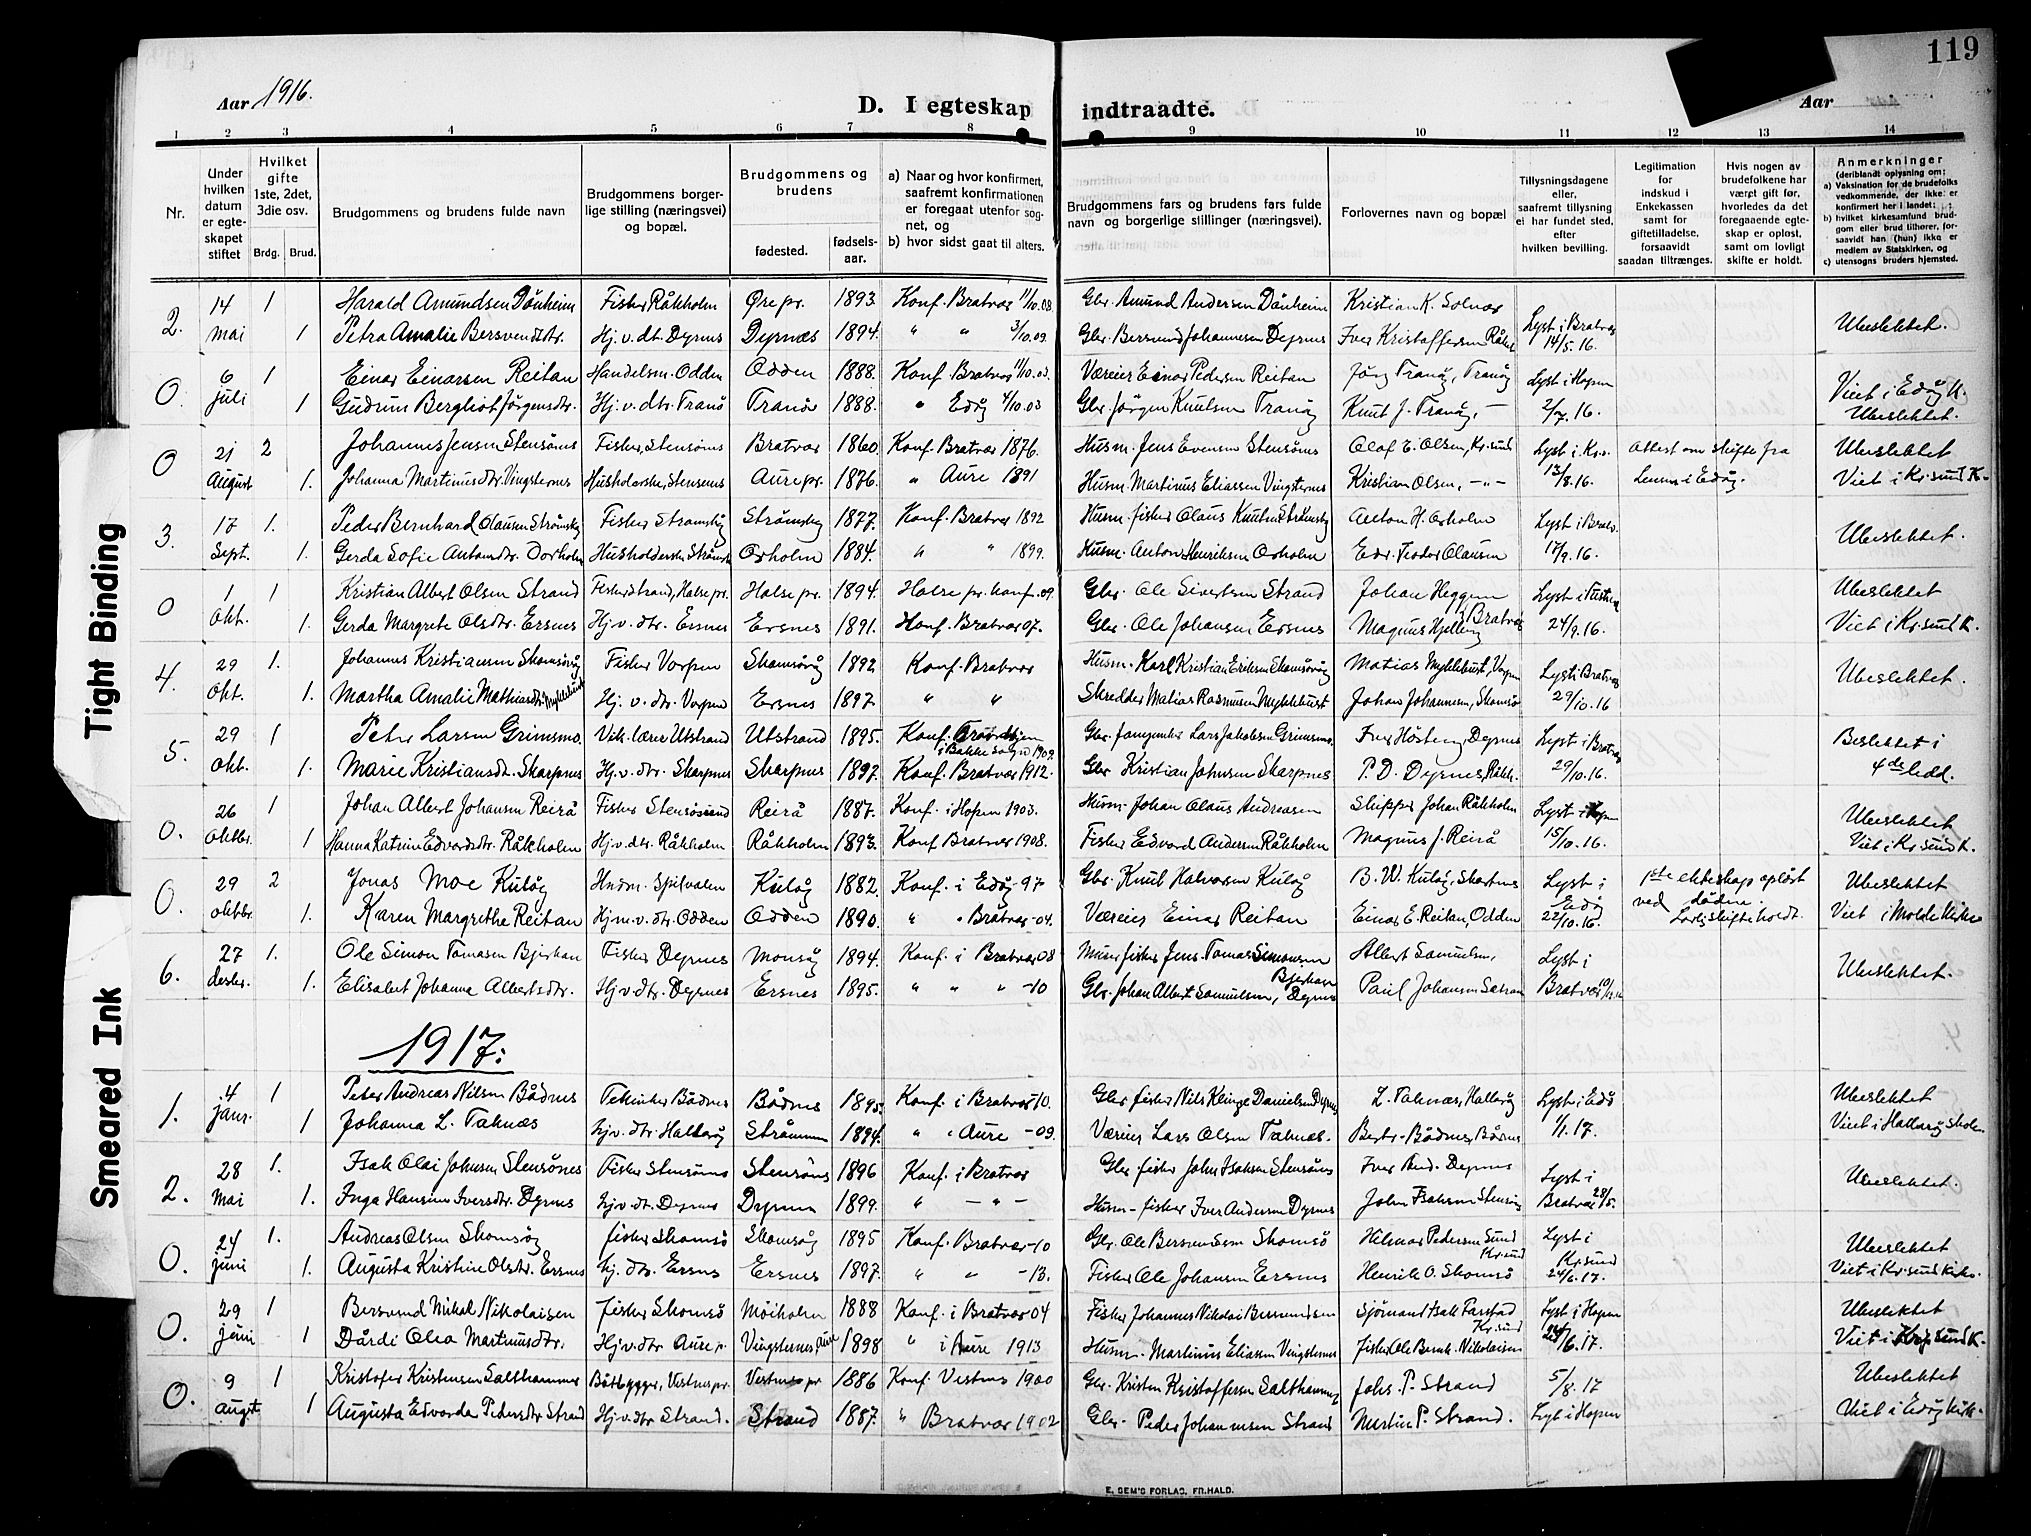 119
Aar 1916.
D. I egteskap indtraadte.
Aar
1 2 3 4 5 6 7 8 9 10 11 12 13 14
Nr.
Under hvilken datum er egte-skapet stiftet
Hvilket gifte 1ste, 2det, 3die osv.
Brdg. Brud.
Brudgommens og brudens fulde navn
Brudgommens borger-lige stilling (næringsvei) og bopæl.
Brudgommens og brudens
fødested.
fødsels-aar.
a) Naar og hvor konfirmert, saafremt konfirmationen er foregaat utenfor sog-net, og
b) hvor sidst gaat til alters.
Brudgommens fars og brudens fars fulde navn og borgerlige stillinger (næringsvei).
Forlovernes navn og bopæl
Tillysningsdagene eller, saafremt tillysning ei har fundet sted, efter hvilken bevilling.
Legitimation for indskud i Enkekassen samt for giftetilladelse, forsaavidt saadan tiltrænges.
Hvis nogen av brudefolkene har været gift før, hvorledes da det foregaaende egte-skap er opløst, samt om lovlig skifte er holdt.
Anmerkninger
(deriblandt oplysning om:
a) Vaksination for de brudefolks vedkommende, der ikke er konfirmert her i landet;
b) hvilket kirkesamfund brud-gom eller brud tilhører, for-saavidt han (hun) ikke er medlem av Statskirken, og
c) utensogns bruders hjemsted.
2. 14 1 Harald Amundsen Dønheim Fisker Råkholm Øre pr. 1893 Konf. Bratvær 11/10.08 Gbr. Amund Andersen Dønheim Kristian K. Solvær
mai 1 Petra Amalie Bersvendsdtr. Hj.v.dt. Dyrnes Dyrnæs 1894. " " 3/10.09. Gbr. Bersvend Johannesen Dyrnes Iver Kristoffersen Råkh. Lyst i Bratvær 14/5.16. Ubeslektet.
0. 6 1 Einar Einarsen Reitan Handelsm. Odden Odden 1888. Konf. Bratvær 11/10.03. Væreier Einar Pedersen Reitan Jørg Tranøy, Tranøy Lyst i Hopen Viet i Edøy K.
juli 1 Gudrun Bergliot Jørgensdtr. Hj.v.dtr. Tranø Tranø 1888. " Edøy 4/10.03 Gbr. Jørgen Knutsen Tranøy Knut J. Tranøy, - 2/7.16. Ubeslektet.
0 21 2 Johannes Jensen Stensønes Fisker, Stensønes Bratvær 1860. Konf. Bratvær 1876. Husm. Jens Evensen Stensønes Olaf E. Olsen, Kr.sund Lyst i Kr.s. Attest om skifte fra Ubeslektet
August 1. Johanna Martinusdtr. Vingsternes Husholderske, Stensønes Aure pr. 1876. " Aure 1891 Husm. Martinus Eliassen Vingsternes Kristian Olsen, -"- 13/8.16. Lensm. i Edøy. Viet i Kr.sund K.
3. 17 1. Peder Bernhard Olausen Strømsøy Fisker Strømsøy Strømsøy 1877. Konf. Bratvær 1892 Husm. fisker Olaus Knutsen Strømsøy Anton H. Orholm Lyst i Bratv. Ubeslektet.
Sept. 1. Gerda Sofie Antonsdtr. Orholm Husholderske Strømsø Orholm 1884. " " 1899. Husm. Anton Henriksen Orholm Edv. Teodor Olausen 17/9.16.
0 1 1 Kristian Albert Olsen Strand Fisker Strand, Halse pr. Halse pr. 1894. Halse pr. konf. 09. Gbr. Ole Sivertsen Strand Johan Heggem Lyst i Tustna Ubeslektet
Okt. 1. Gerda Margrete Olsdtr. Ersnes Hj.v.dtr. Ersnes Ersnes 1891. Konf. Bratvær 07. Gbr. Ole Johansen Ersnes Magnus Hjelling Bratvær 24/9.16. Viet i Kr.sund K.
4. 29 1. Johannes Kristiansen Skomsøy Fisker Vorpen Skomsøy 1892 Konf. Bratvær Husm. Karl Kristian Eriksen Skomsøy Matias Myklebust, Vorpen Lyst i Bratvær Ubeslektet.
Okt. 1. Martha Amalie Mathiasdtr. Myklebust Hj. v. dtr. Vorpen Ersnes 1897. " " Skredder Matias Rasmussen Myklebust Johan Johannesen, Skomsø 29/10.16
5. 29 1 Peter Larsen Grimsmo. Vik. lærer Utstrand Utstrand 1895. Konf. Trondhjem i Bakke sogn 1909. Gbr. Lars Jakobsen Grimsmo. Iver Høsteng, Dyrnes Lyst i Bratvær Beslektet i
Okt. 1. Marie Kristiansdt. Skarpnes Hj.v.dtr. Skarpnes Skarpnes 1897. Konf. Bratvær 1912. Gbr. Kristian Johnsen Skarpnes P. D. Dyrnes, Råkh. 29/10.16. 4de ledd.
0. 26 1 Johan Albert Johansen Reirå Fisker Stensøsund Reirå 1887. Konf. i Hopen 1903. Husm. Johan Olaus Andreasen Skipper Johan Råkholm Lyst i Hopen Ubeslektet
Oktbr. 1 Hanna Katrine Edvardsdtr. Råkholm Hj.v.dtr. Råkholm Råkholm 1893. Konf. Bratvær 1908. Fisker Edvard Andersen Råkholm Magnus J. Reirå 15/10.16. Viet i Kr.sund K.
0. 29 2 Jonas Moe Kuløy Kuløy 1882. Konf. i Edøy -97 Gbr. Knut Halvorsen Kuløy B. W. Kuløy, Lyst i Edø 1ste ekteskap opløst ved døden. Ubeslektet
oktbr. 1. Karen Margrethe Reitan Hjm.v.dtr. Odden Odden 1890. " " Bratvær -04. Væreier Einar Reitan Einar E. Reitan, Odden 22/10.16. Lovlig skifte holdt. Viet i Molde Kirke
6. 27 1. Ole Simon Tomasen Bjerkan Fisker Dyrnes Monsøy 1894. Konf. i Bratvær 08 fisker Jens Tomas Simonsen Bjerkan Albert Samuelsen, Lyst i Ubeslektet.
desbr. 1. Elisabet Johanna Albertsdtr. Hj.v.dtr. Dyrnes Ersnes 1895. " " " -10 Gbr. Johan Albert Samuelsen, Dyrnes Paul Johansen Bratvær 10/12.16
1917:
1. 4 1 Peter Andreas Nilsen Bådnes Bådnes Bådnes 1895. Konf. i Bratvær -10. Gbr. fisker Nils Klinge Danielsen Dyrnes L. Taknæs, Hallarøy Lyst i Edø Ubeslektet
janr. 1 Johanna L. Taknæs hj.v.dtr. Hallarøy Strømmen 1894. " " Aure -09. Væreier Lars Olsen Taknæs. Bådnes, Bådnes 1/1.17. Viet i Hallarøy skole.
2. 28 1. Isak Olai Johnsen Stensønes Fisker Stensønes Stensønes 1896 Konf. i Bratvær Gbr. fisker John Isaksen Stensønes Iver And. Dyrnes Lyst i Ubeslektet.
Mai 1. Inga Hansine Iversdtr. Dyrnes hj.v.dt. Dyrnes Dyrnes 1899. " - " - Husm. fisker Iver Andersen Dyrnes John Isaksen Stensøn. Bratvær 28/5.
0. 24 1. Andreas Olsen Skomsøy fisker Skomsø Skomsøy 1895 Konf. Bratvær -10 Gbr. Ole Bersvendsen Skomsø Hilmar Pedersen Sund Kr.sund Lyst i Kr.sund Ubeslektet
juni 1. Augusta Kristine Olsdtr. Ersnes hj. dtr. Ersnes Ersnes 1897. " " -13. Fisker Ole Johansen Ersnes Henrik O. Skomsø 24/6.17. Viet i Kr.sund kirke.
0. 29 1 Bersvend Mikal Nikolaisen fisker Skomsø Moiholm 1888 Konf. i Bratvær 04 Fisker Johannes Nikolai Bersvendsen Sjømand Isak Farstad Kr.sund Lyst i Hopen Ubeslektet
juni 1 Dårdi Olea Martinusdtr. Hj.v.dtr Aure p. Vingsternes, Aure 1898 " i Aure 1913 Husm. Martinus Eliassen Vingsternes fisker Ole Bernh. Nikolaisen 24/6.17. Viet i Kr.sund K.
0. 9 1 Kristofer Kristensen Salthammer Båtbygger, Vestnes pr. Vestnes pr 1886 Konf. Vestnes 1900 Gbr. Kristen Kristoffersen Salthammer Johs. P. Strand 5/8.17 Ubeslektet
august 1 Augusta Edvarda Pedersdtr Strand Hj.v.dtr Strand. Strand 1887. " Bratvær 1902 Gbr. Peder Johannesen Strand Martin P. Strand. Lyst i Hopen Viet i Edøy kirke.
E. SEM'S FORLAG, FR.HALD.
Tight Binding
Smeared Ink